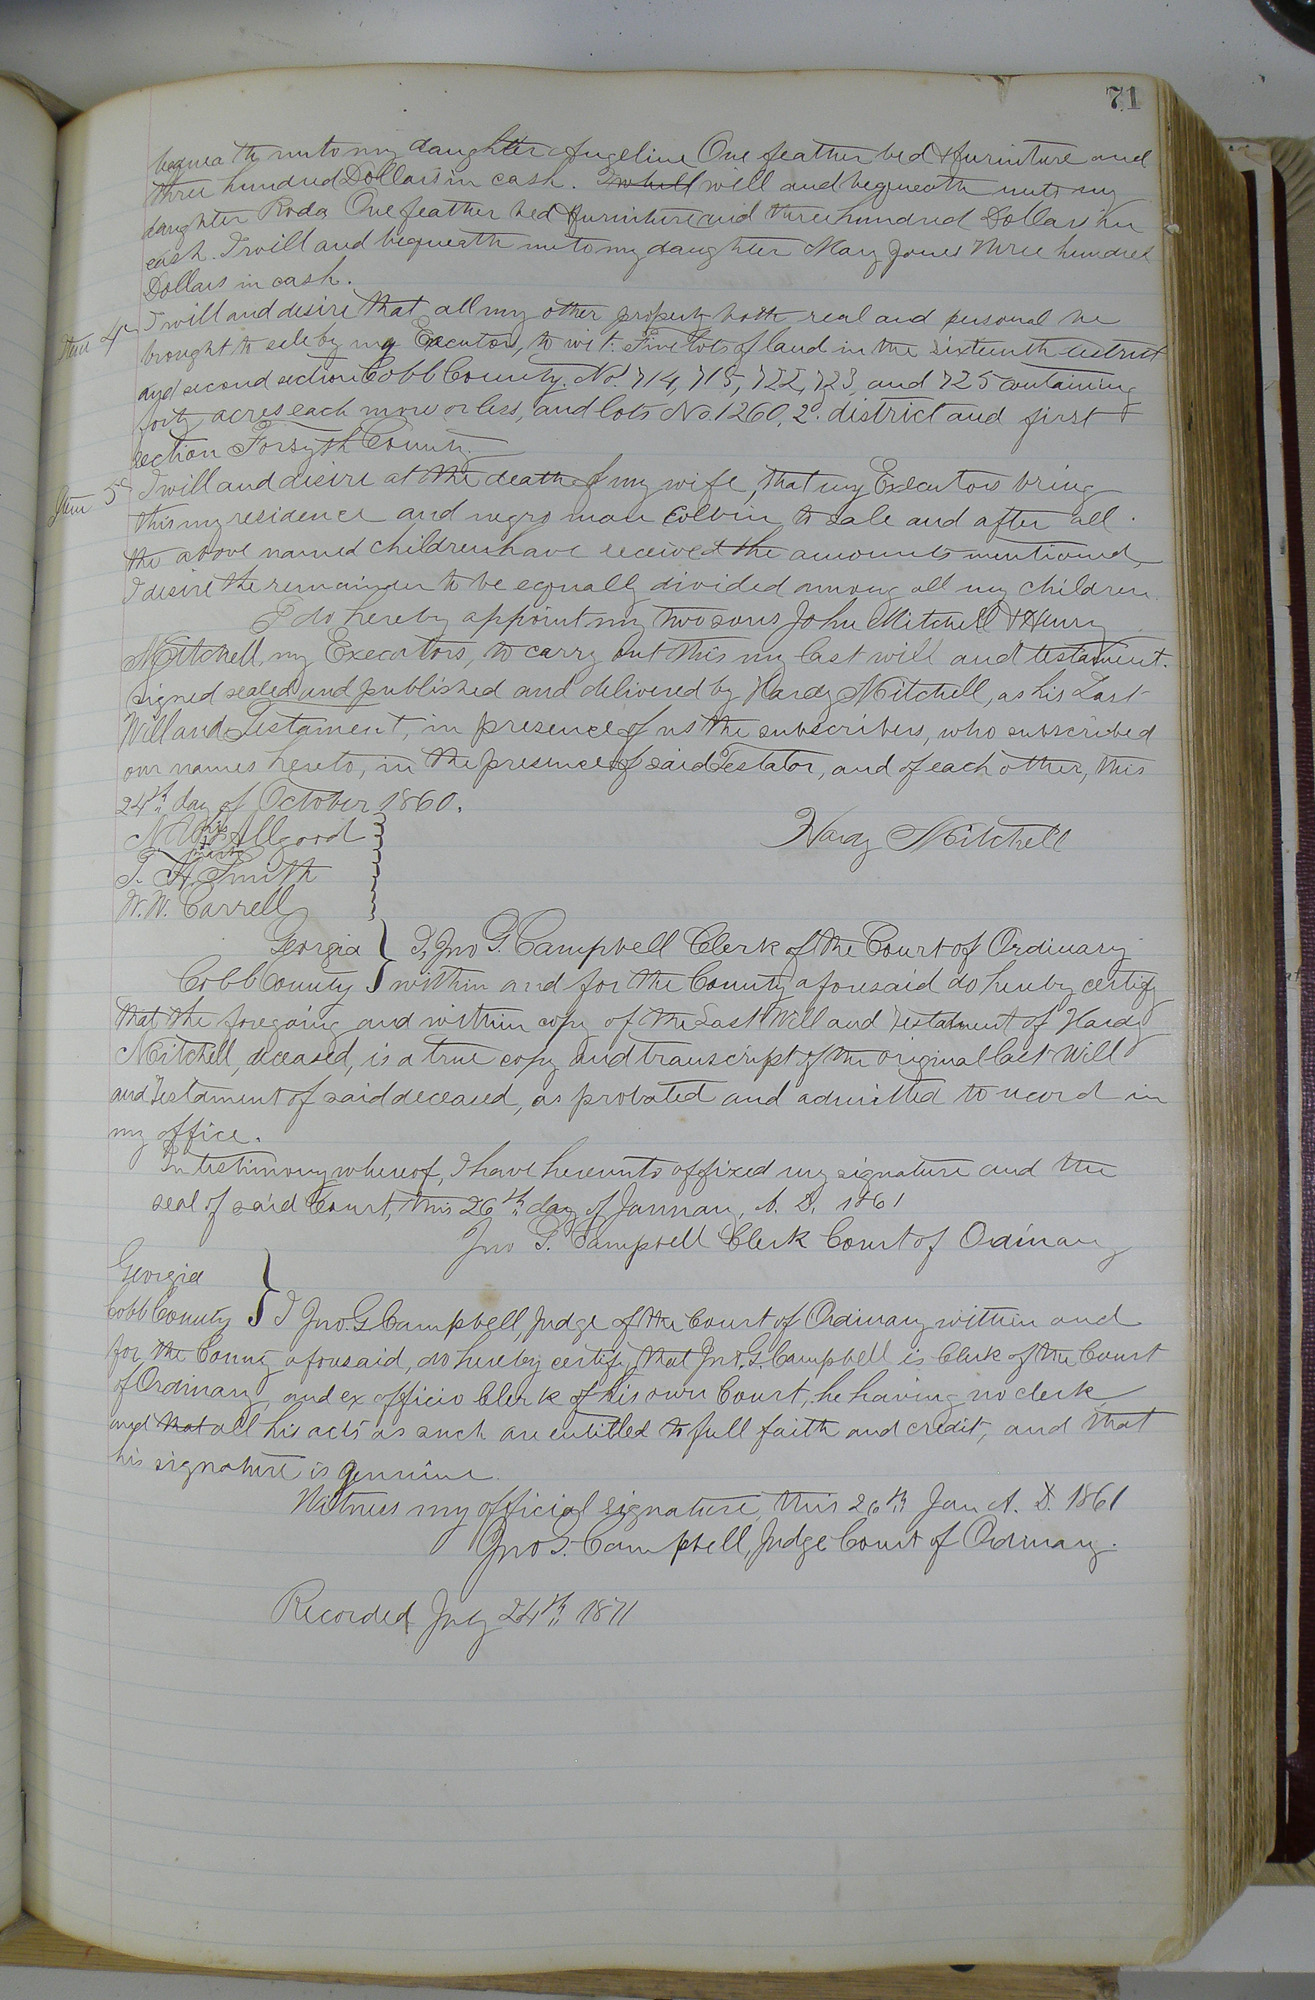 71
bequea th unto my daughter Angeline One feather bed & furniture and
three hundred Dollars in cash. I will and bequeath unto my
daughter Roda One feather bed & furniture and three hundred Dollars in
cash. I will and bequeath unto my daughter Mary Jones three hundred
Dollars in cash.
Item 4th I will and desire that all my other property both real and personal be
brought to sale by my Executors, to wit: Five lots of land in the sixteenth district
and second section Cobb County. Nos 714, 715, 722, 723, and 725 containing
forty acres each more or less, and lots No. 1260, 2d. district and first
section Forsyth County.
Item 5th I will and desire at the death of my wife, that my Executors bring
this my residence and negro man Colbin to sale and after all
the above named children have received the amounts mentioned,
I desire the remainder to be equally divided among all my children.
I do hereby appoint my two sons John Mitchell & Henry
Mitchell, my Executors, to carry out this my last will and testament.
Signed sealed and published and delivered by Hardy Mitchell, as his Last
Will and Testament, in presence of us the subscribers, who subscribed
our names hereto, in the presence of said Testator, and of each other, this
24th day of October 1860.
N. W. his Allgood
mark
Hardy Mitchell
T. H. Smith
W. W. Carrell
Georgia } I, Jno G. Campbell Clerk of the Court of Ordinary
Cobb County } within and for the County aforesaid do hereby certify
that the foregoing and within copy of the Last Will and Testament of Hardy
Mitchell, deceased, is a true copy and transcript of the original last Will
and Testament of said deceased, as probated and admitted to record in
my office.
In testimony whereof, I have hereunto affixed my signature and the
seal of said Court, this 26th day of January, A. D. 1861
Jno G. Campbell Clerk Court of Ordinary
Georgia
Cobb County } I Jno. G Campbell, Judge of the Court of Ordinary within and
for the County aforesaid, do hereby certify, that Jno. G. Campbell is Clerk of the Court
of Ordinary, and ex officio Clerk of his own Court, he having no clerk
and that all his acts as such are entitled to full faith and credit, and that
his signature is genuine.
Witness my official signature, this 26th Jan A. D. 1861
Jno G. Campbell, Judge Court of Ordinary.
Recorded July 24th 1871